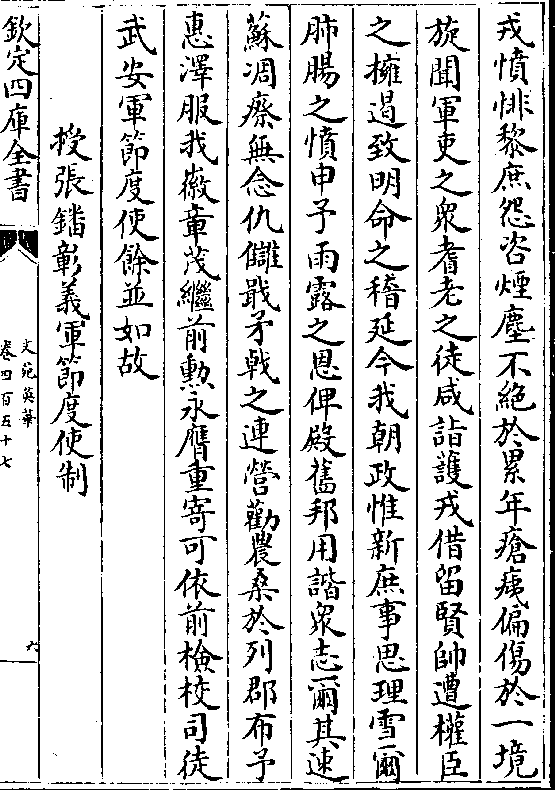 戎憤悱黎庶怨咨煙塵不絕於累年瘡痍偏傷於一境
旋聞軍吏之衆耆老之徒咸詣護戎借留賢帥遭權臣
之擁遏致明命之稽延今我朝政惟新庶事思理雪爾
肺腸之憤申予雨露之恩俾殿舊邦用諧衆志爾其速
蘇凋瘵無念仇讎戢矛戟之連營勸農桑於列郡布予
惠澤服我徽章茂繼前勲永膺重寄可依前檢校司徒
武安軍節度使餘並如故
授張鐇彰義軍節度使制
欽定四庫全書
文苑英華
卷四百五十七
六